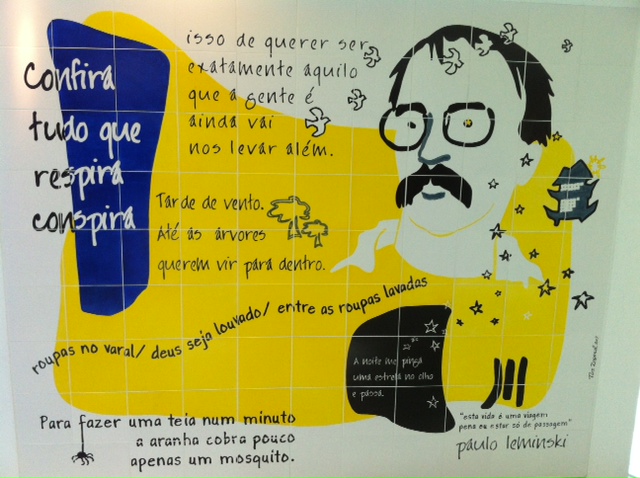 Confira
tudo que
respira
conspira
isso de querer ser
exatamente aquilo
que a gente é
ainda vai
nos levar além.
Tarde de vento.
Até as árvores
querem vir para dentro.
roupas no varal/ deus seja louvado/ entre as roupas lavadas
A noite me pinga
uma estrela no olho
e passa.
Para fazer uma teia num minuto
a aranha cobra pouco
apenas um mosquito.
"esta vida é uma viagem
pena eu estar só de passagem"
paulo leminski